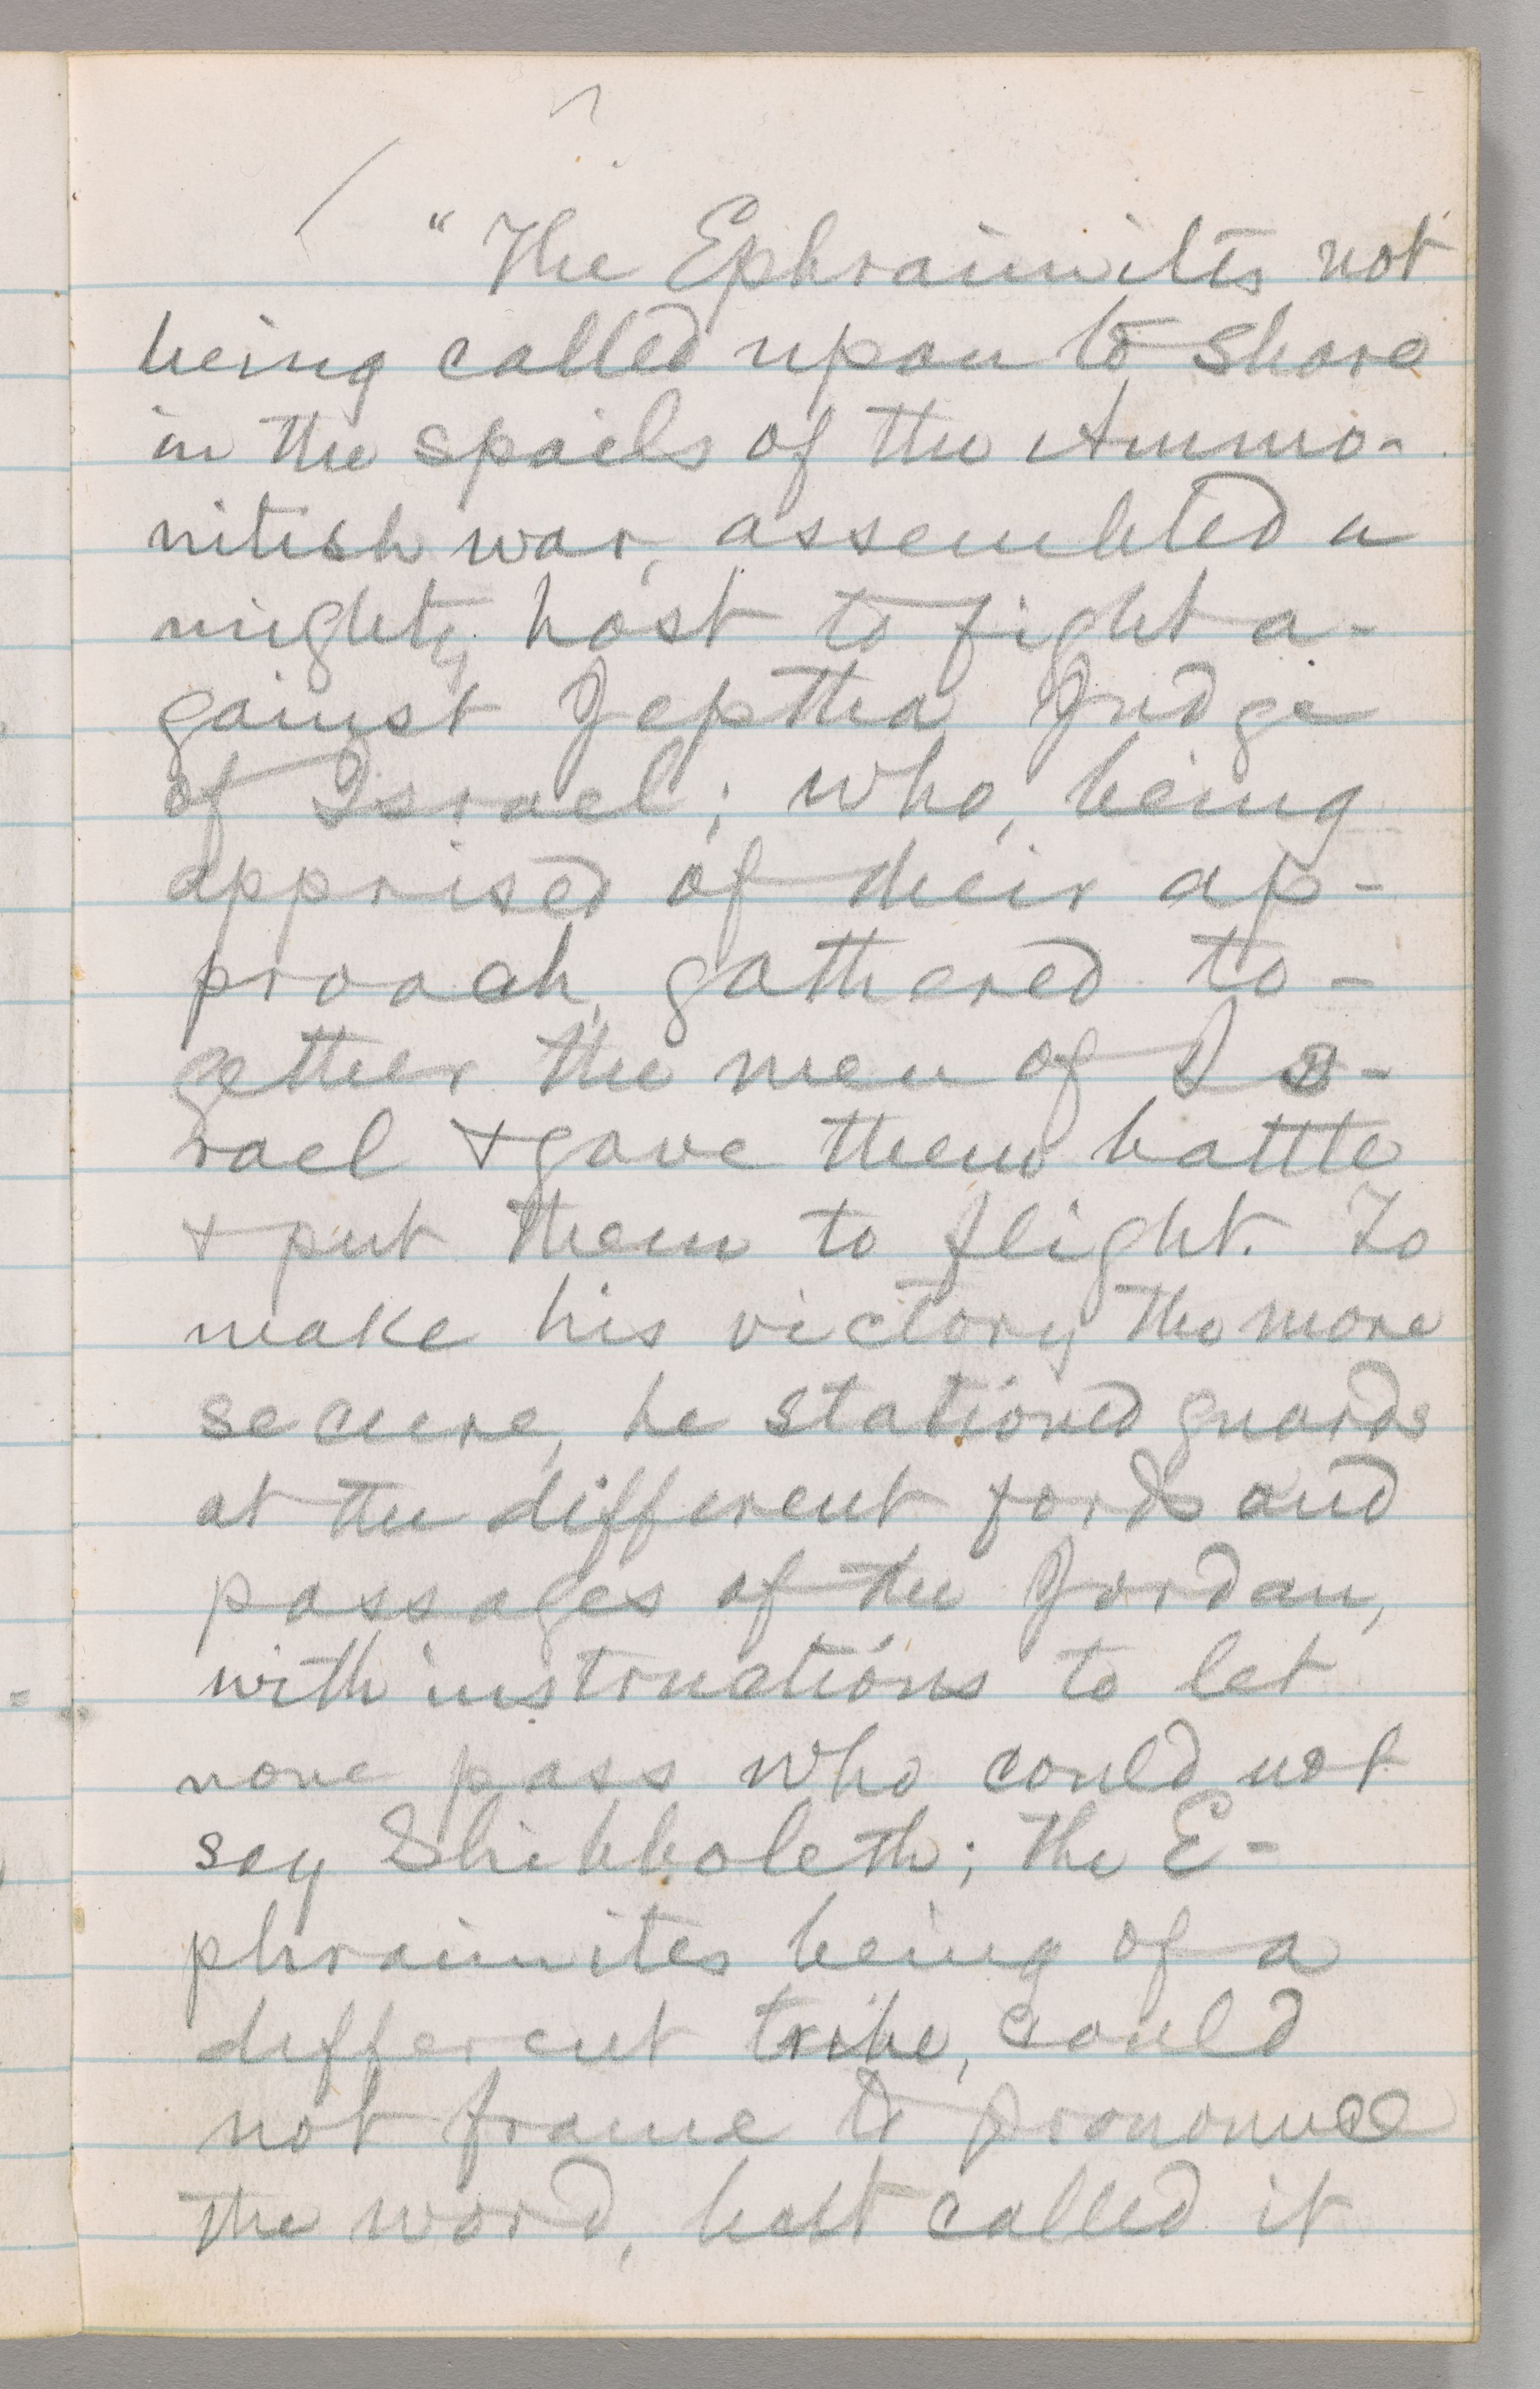 "The Ephraimites not
being called upon to share
in the spoils of the Ammo-
nitish war, assembled a
mighty host to fight a-
gainst Jeptha Judge
of Israel; who, being
apprised of their ap-
proach, gathered to-
gether the men of Is-
rael & gave them battle
& put them to flight. To
make his victory the more
secure, he stationed guards
at the different fords and
passages of the Jordan,
with instructions to let
none pass who could not
say Shibboleth; the E-
phraimites being of a
different tribe, could
not frame to pronounce
the word, but called it